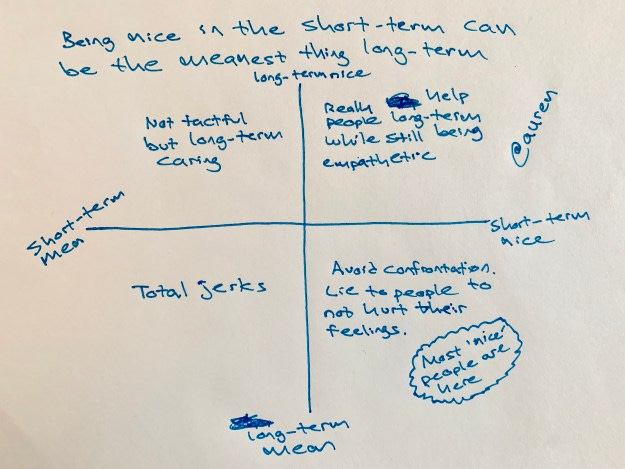 Being nice in the short-term can
be the meanest thing long-term
long-term nice
Not tactful
but long-term
caring
Really help
people long-term
while still being
empathetic
@auren
Short-term
mean
Short-term
nice
Total jerks
Avoid confrontation.
Lie to people to
not hurt their
feelings.
Most 'nice'
people are
here
long-term
mean